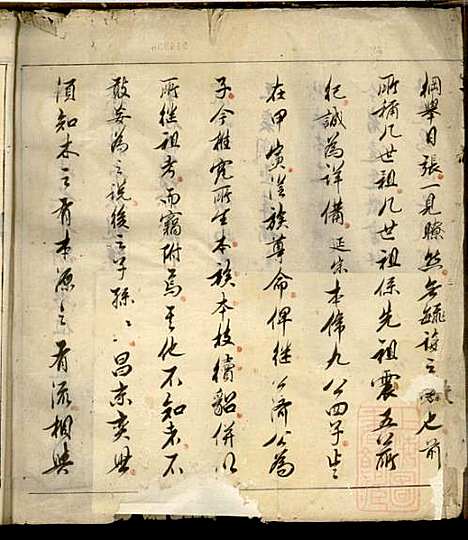 綱舉目張一見瞭然無疏誇之 七前
所稱几世祖几世祖係先祖震五公所
紀誠為詳備延宗本係九公四子
在甲寅從族尊命俾继公濟公為
子今推寬所生本族本枝續貂併以
所继祖考而竊附焉其他不知者不
敢妄為之說後之子孫 昌末奕世
須知木之有本源之有流相與